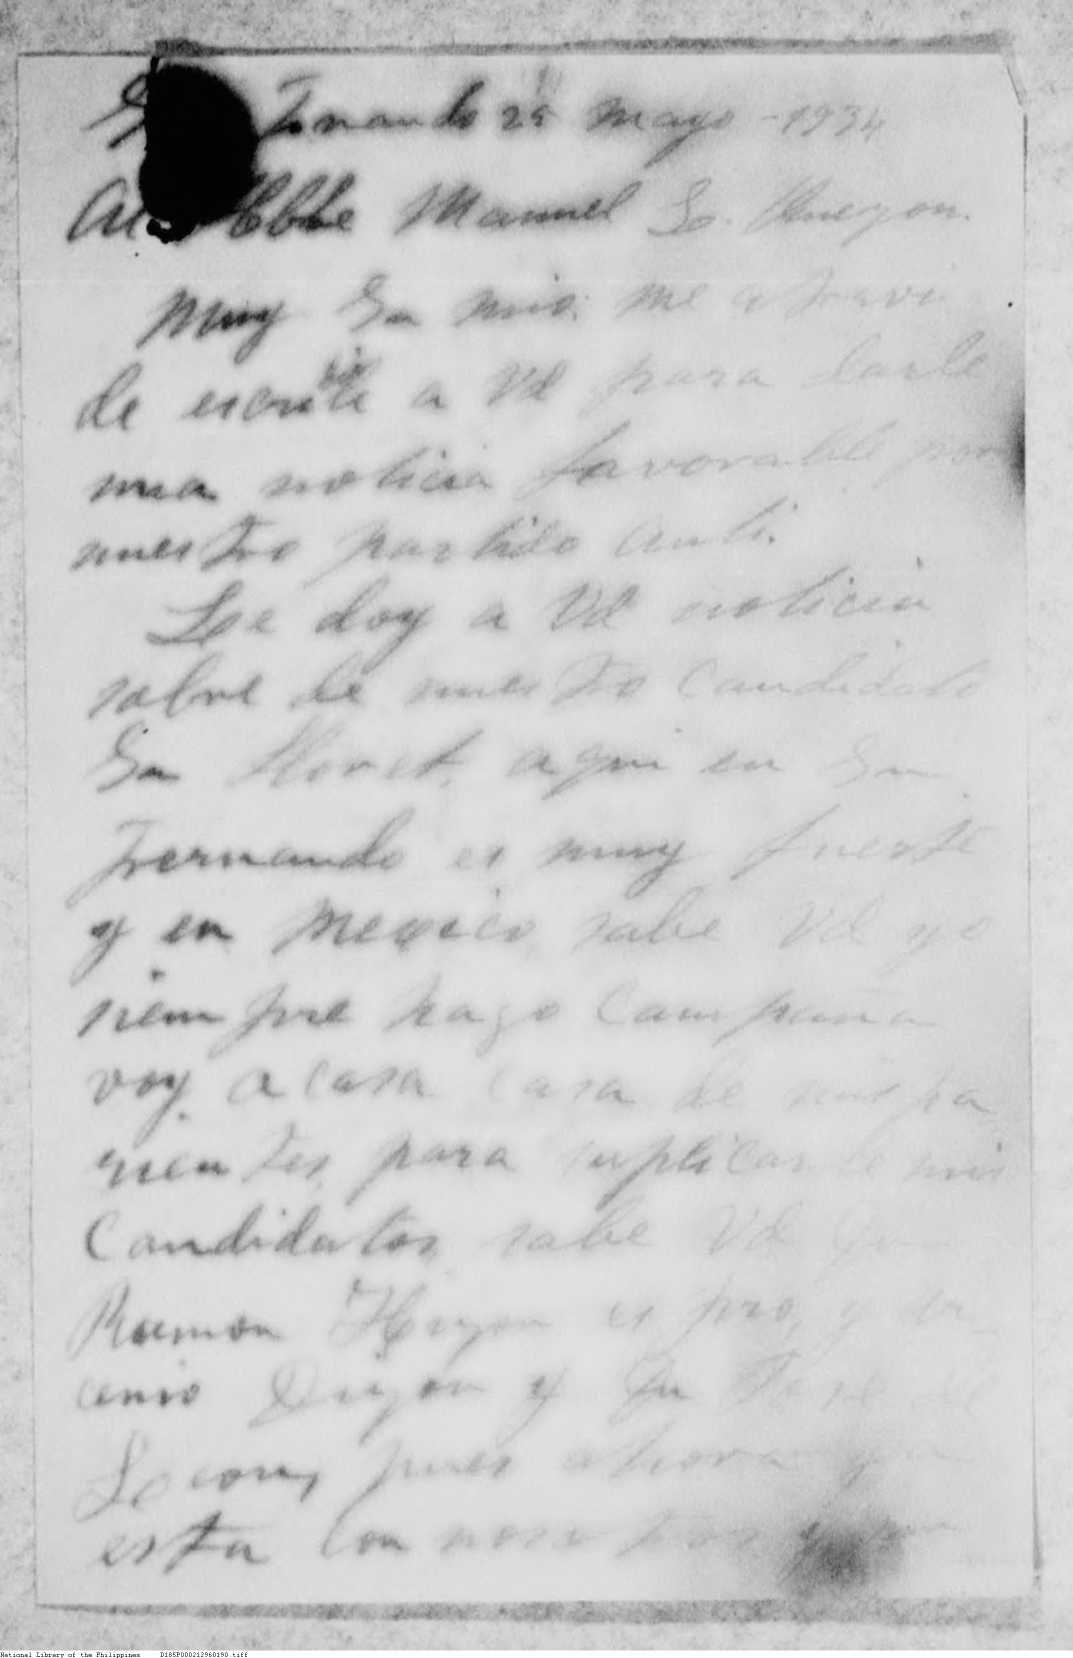 Fernando 25 Mayo - 1934
Al Hble Manuel L. Quezon.
Muy Sr mio: me atravi
de escribir a Vd para darle
una noticia favorable por
nuestro partido anti.
Le doy a Vd noticia
sobre de nuestro candidato
Sr Lloret, aqui en Sn
Fernando es muy fuerte
y en Mexico, sabe Vd yo
siempre hago campaña
voy a casa casa de mis pa
rientes, para suplicar mis
Candidatos, sabe Vd
Ramon es pro, y
Dizon y
pues ahora
esta con nosotros
National Library of the Philippines D185P000212960190.tiff